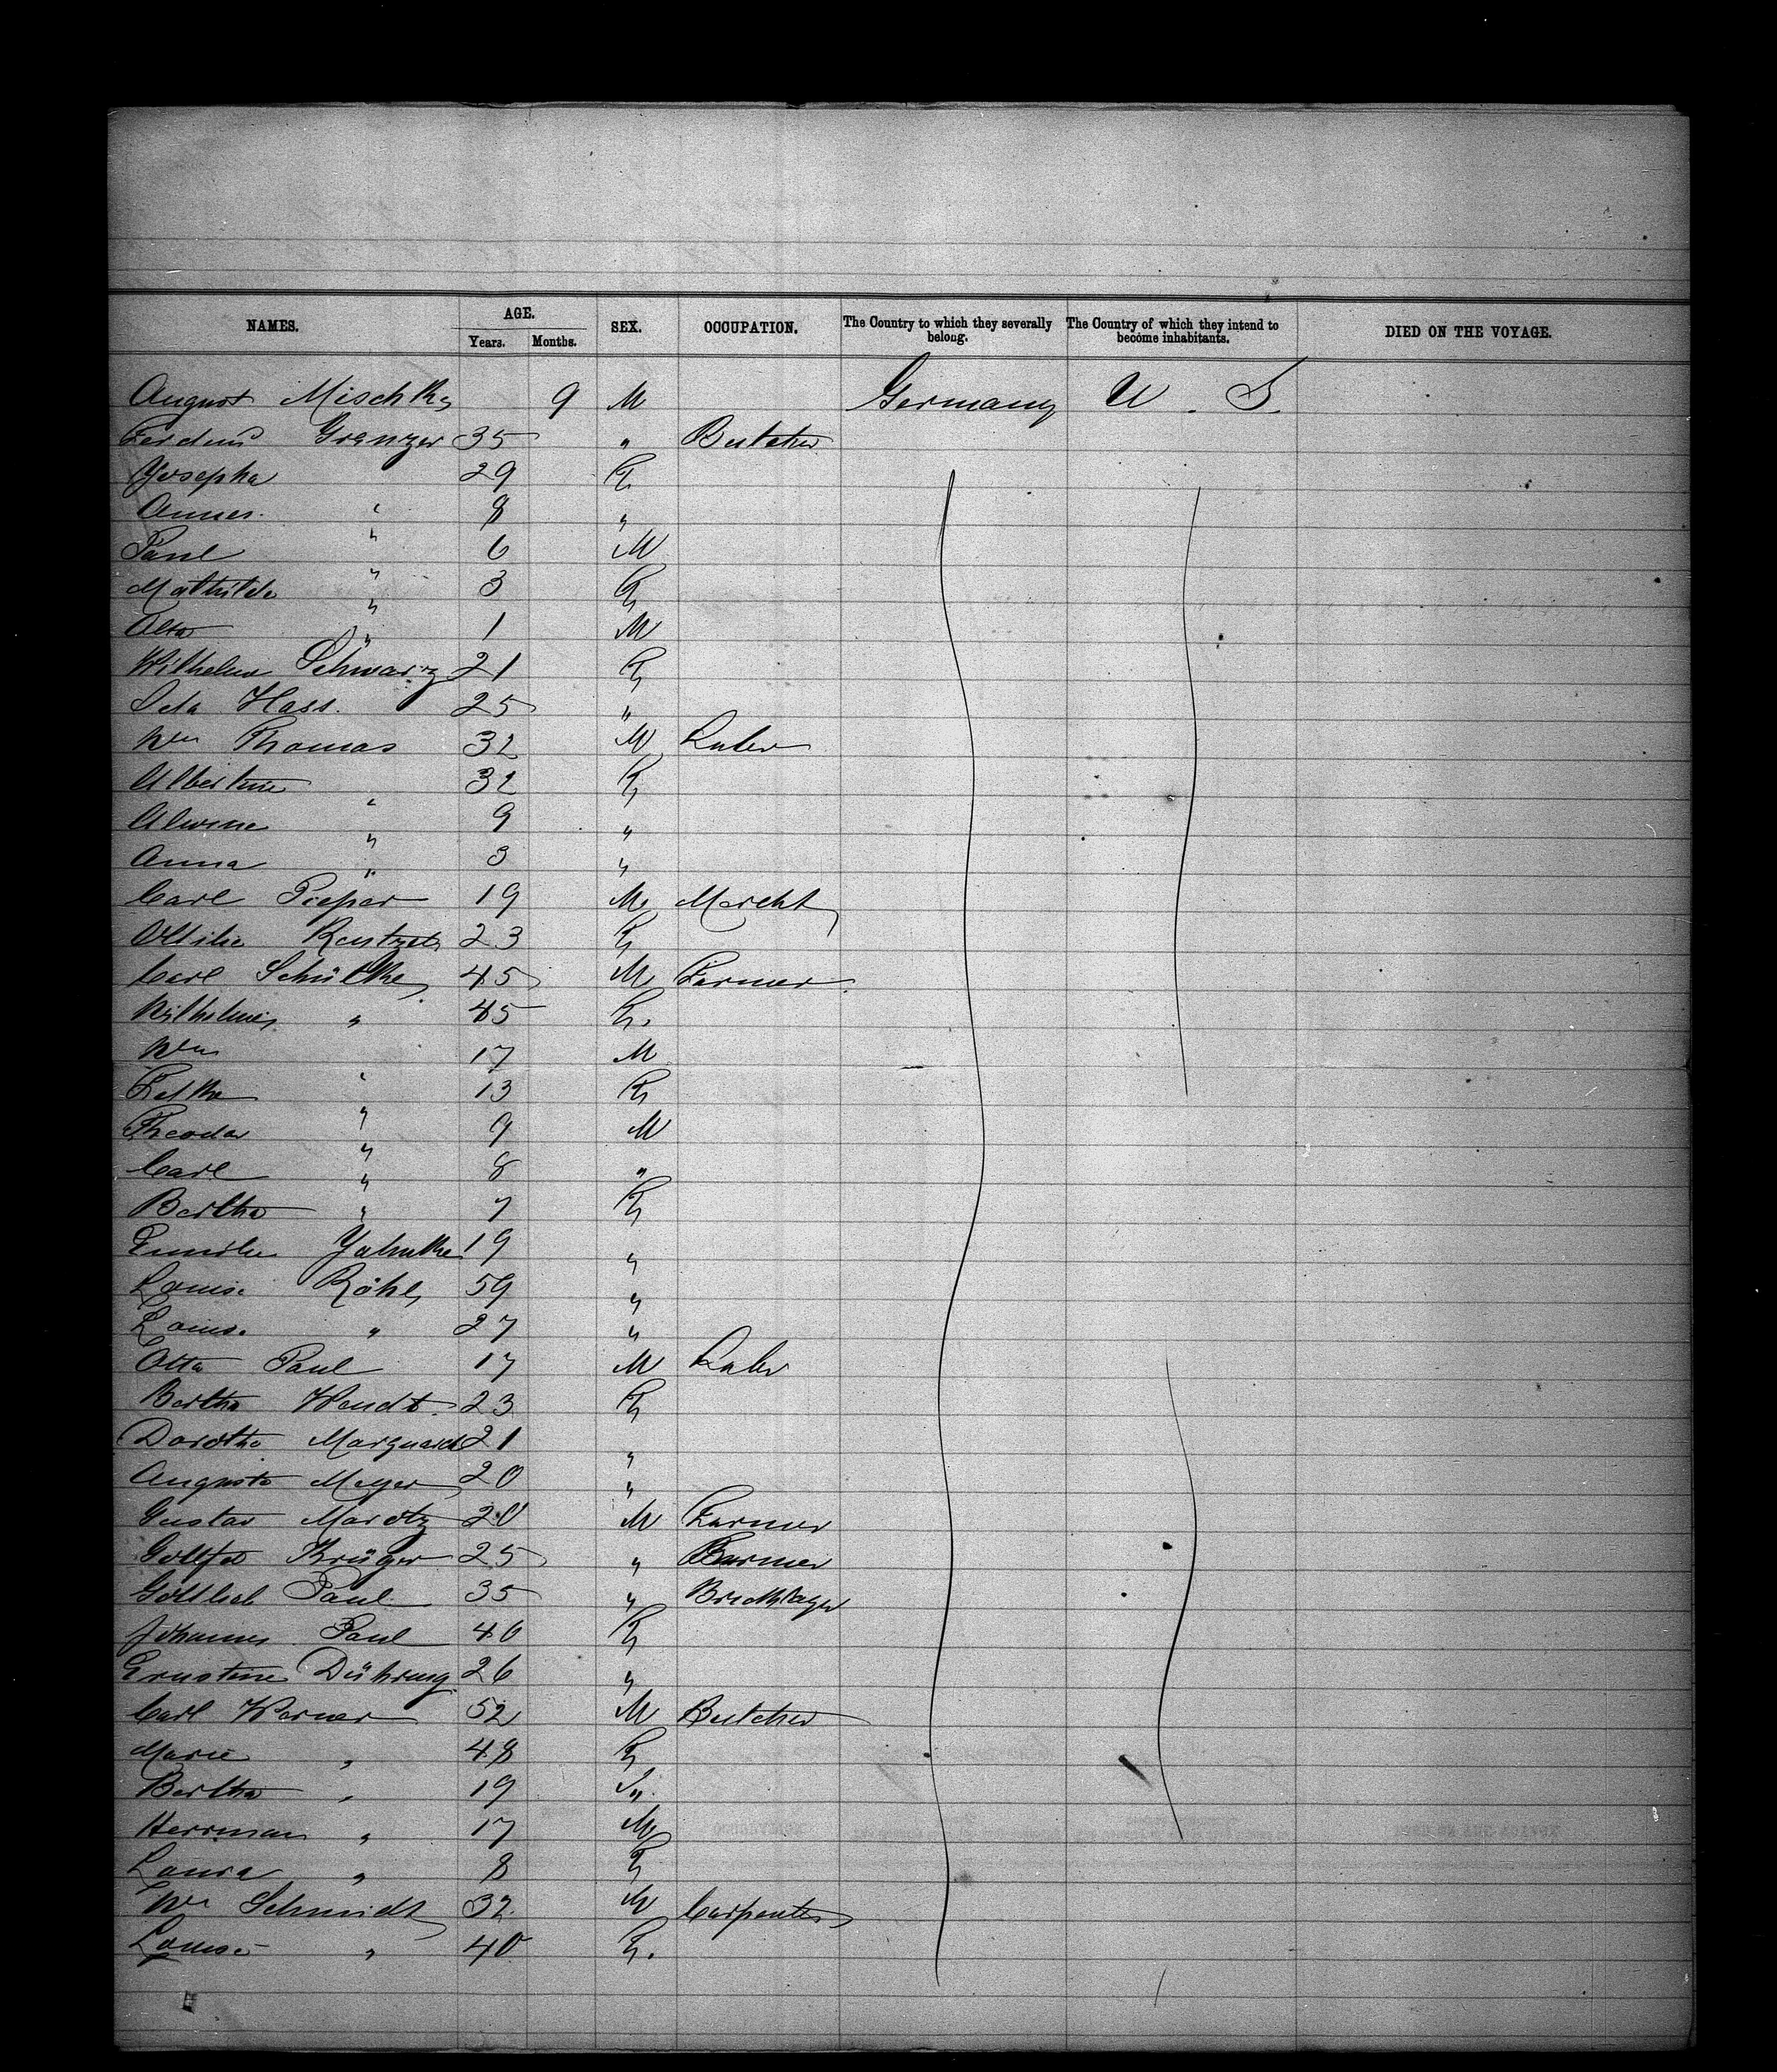 NAMES. AGE. Years. Months. SEX. OCCUPATION. The Country to which they severally belong. The Country of which they intend to become inhabitants. DIED ON THE VOYAGE.
August Mischke 9 M Germany U. S.
Ferdind Granzer 35 " Butcher
Josepha 29 F
Annes. " 8 "
Paul " 6 M
Mathilde " 3 F
Otto " 1 M
Wilhelm Schwarz 21 F
Ida Hass. 25 "
Wm Thomas 32 M Labr
Albertine " 32 F
Alwine " 9 "
Anna " 3 "
Carl Pieper 19 M Marcht
Ottilie 23 F
Carl Schülke 45 M Farmer
Wilhelmine " 45 F.
Wm " 17 M
" 13 F
Theodor " 9 M
Carl " 8 "
Bertha " 7 F
Emilie Jahnke 19 "
Louise Röhl 59 "
Louise " 27 "
Otto Paul 17 M Labr
Bertha Wendt 23 F
Dorotha Marquard 21 "
Augusta Meyer 20 "
Gustav Marotz 20 M Farmer
Gottfd Krüger 25 " Farmer
Gottlieb Paul 35 "
Johannes Paul 40 F
Ernstine Dühring 26 "
Carl Werner 52 M Butcher
Marie " 48 F
Bertha " 19 "
Herrman " 17 M
Laura " 8 F
Wm Schmidt 32 M Carpenter
Louise " 40 F.